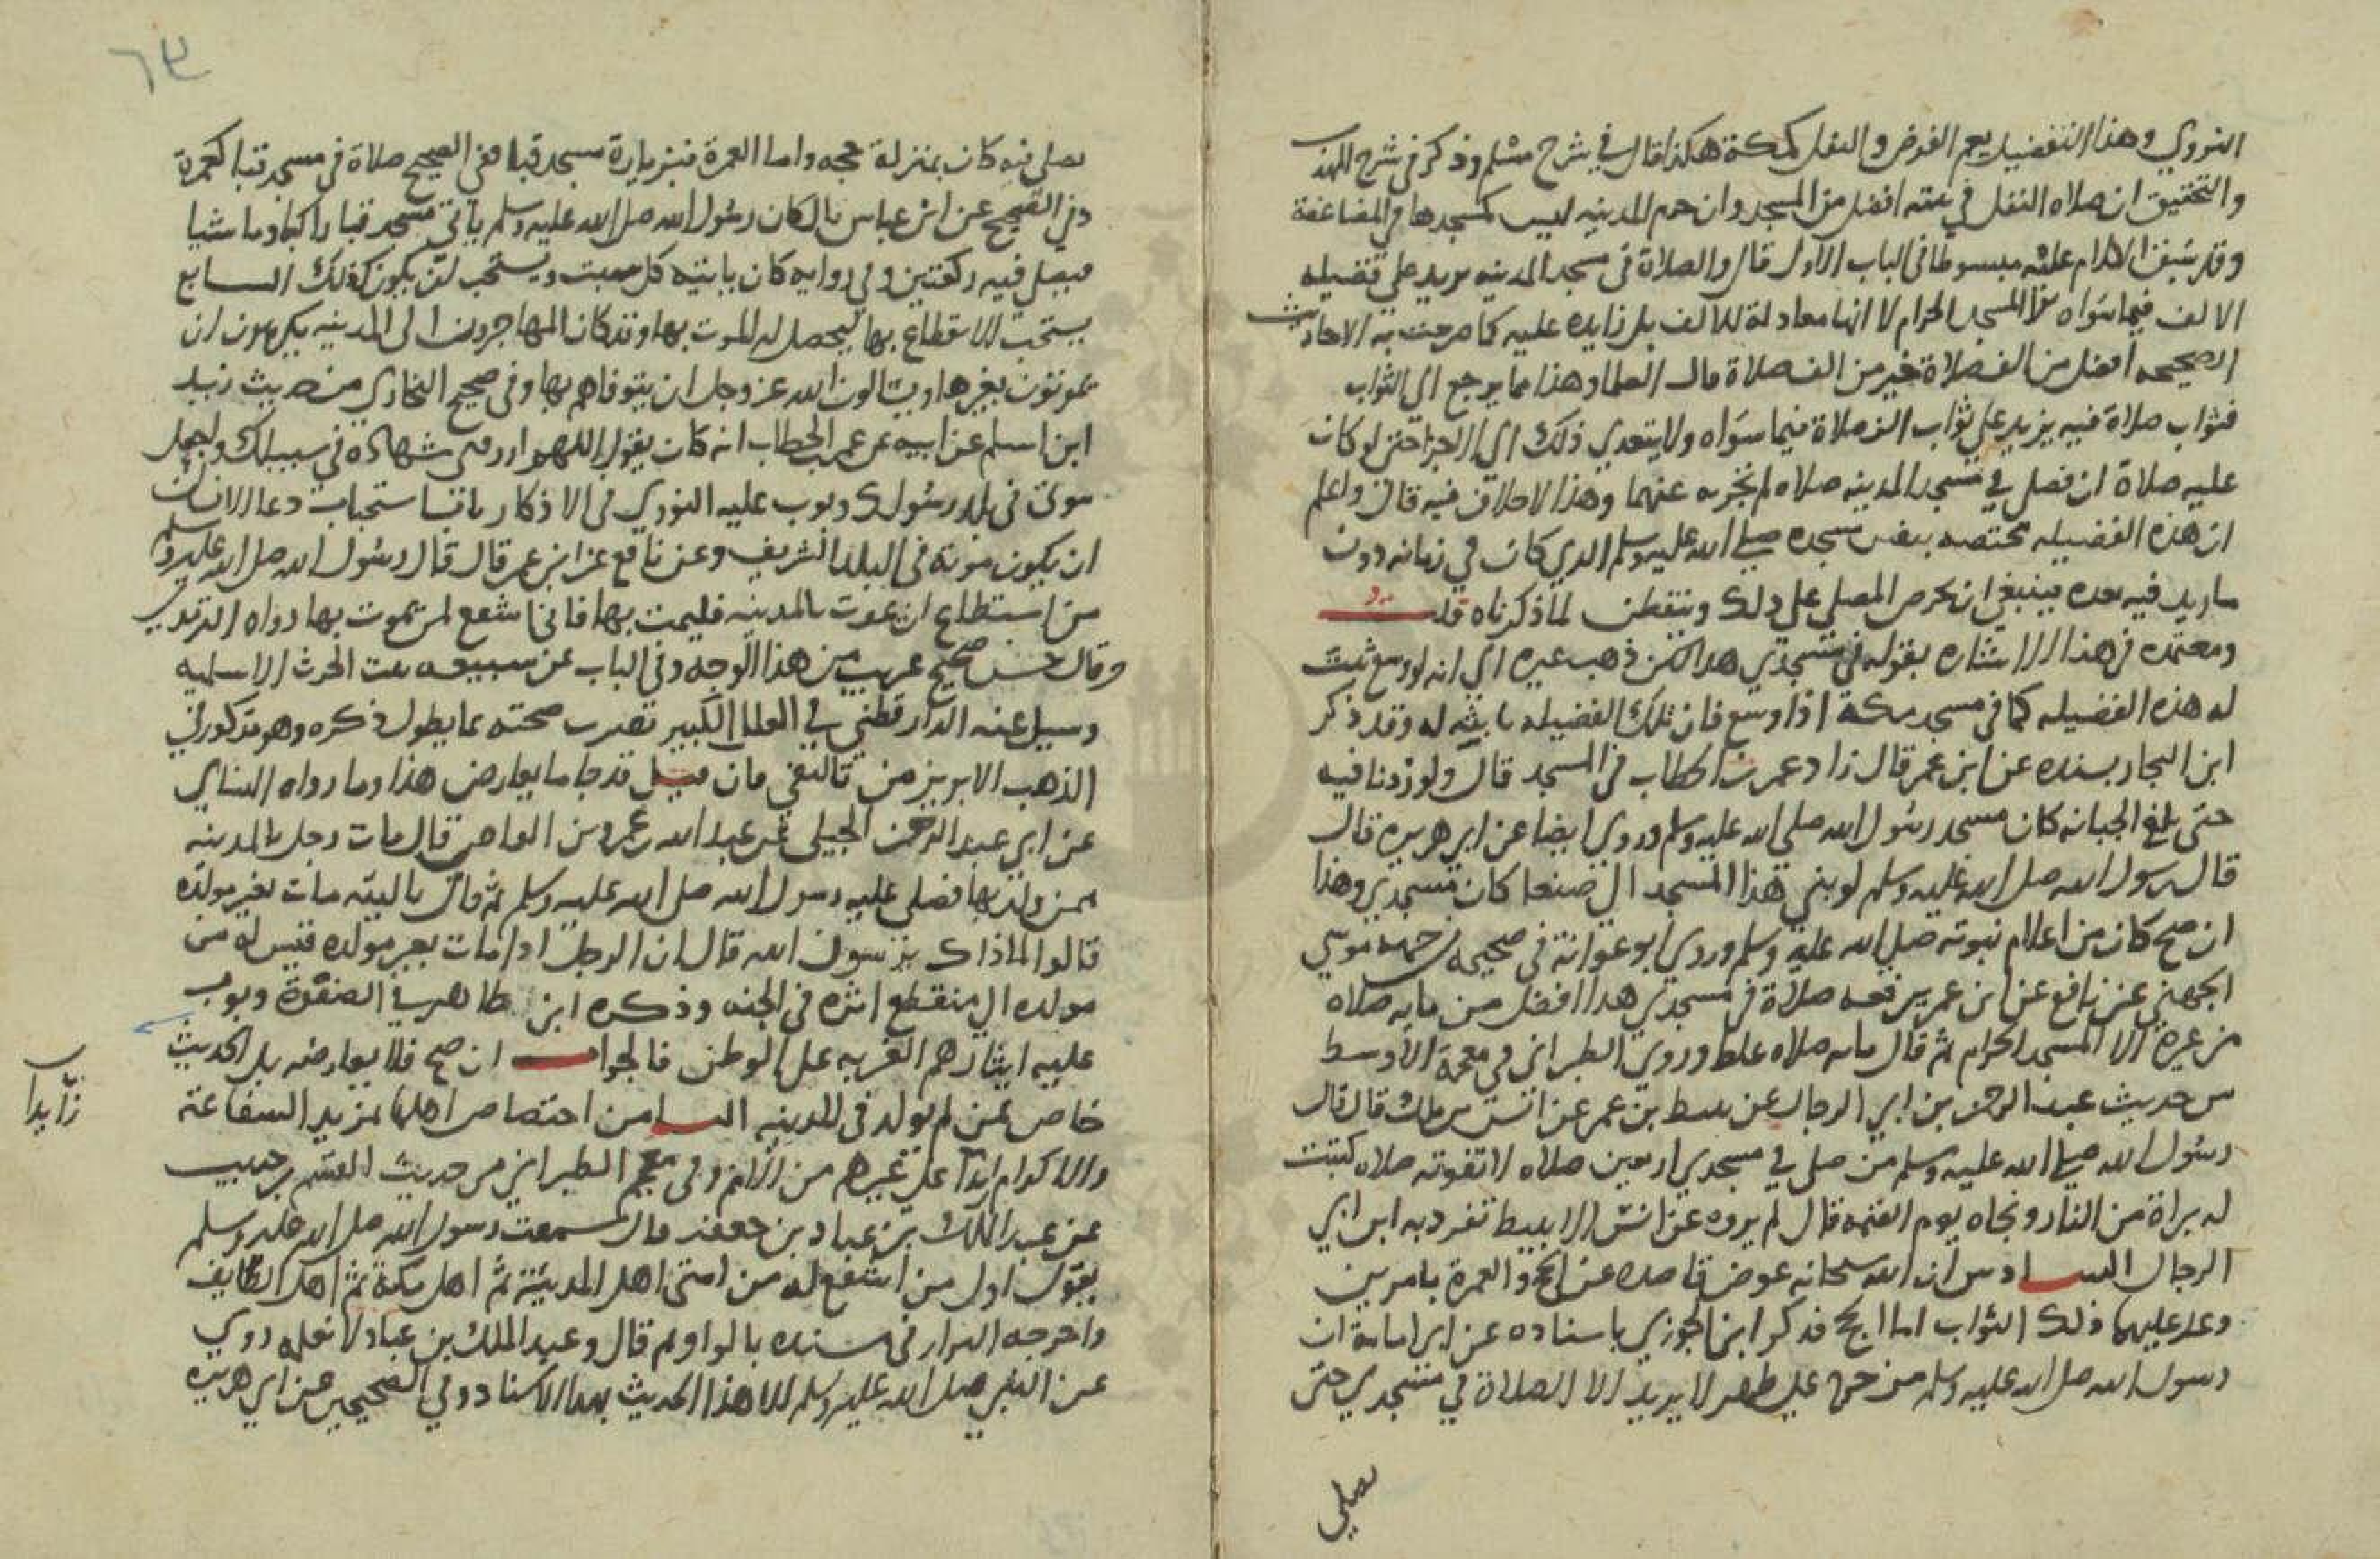 النووي وهذا التفضيل يعم الفرض والنفل كمكة هكذا قال في شرح مسلم وذكر في شرح المهذب
والتحقيق ان صلاه النفل في بيته افضل من المسجد وان حرم المدينه ليس كمسجدها في المضاعفة
وقد سبق الكلام عليه مبسوطا في الباب الاول قال والصلاة في مسجد المدينه يزيد على فضيله
الالف فيما سواه الا المسجد الحرام لا انها معادلة للالف بل زايده عليه كما صرحت به الاحاديث
الصحيحه افضل من الف صلاة خير من الف صلاة قال العلما وهذا مما يرجع الى الثواب
فثواب صلاة فيه يزيد على ثواب الف صلاة فيما سواه ولا يتعدي ذلك الى الاجزا حتى لو كان
عليه صلاة ان فصلى في مسجد المدينه صلاه لم تجزه عنهما وهذا لا خلاف فيه قال واعلم
ان هذه الفضيله مختصه بنفس مسجده صلى الله عليه وسلم الذي كان في زمانه دون
ما زيد فيه بعده فينبغي ان يحرص المصلي على ذلك ويتفطن لما ذكرناه قلت
ومعتمده في هذا الاشاره بقوله في مسجدي هذا لكن ذهب غيره الى انه لو وسع ثبت
له هذه الفضيله كما في مسجد مكة اذا وسع فان تلك الفضيله ثابته له وقد ذكر
ابن النجار بسنده عن ابن عمر قال زاد عمر بن الخطاب في المسجد قال ولو زدنا فيه
حتى بلغ الجبانه كان مسجد رسول الله صلى الله عليه وسلم وروي ايضا عن ابي هريره قال
قال رسول الله صلى الله عليه وسلم لو بني هذا المسجد الى صنعا كان مسجدي وهذا
ان صح كان من اعلام نبوته صلى الله عليه وسلم وروي ابو عوانة في صحيحه من جهة موسي
الجهني عن نافع عن ابن عمر يرفعه صلاة في مسجدي هذا افضل من مايه صلاه
في غيره الا المسجد الحرام ثم قال مايه صلاه غلط وروي الطبراني في معجمه الاوسط
من حديث عبد الرحمن بن ابي الرجال عن نبيط بن عمر عن انس بن ملك قال قال
رسول الله صلى الله عليه وسلم من صلى في مسجدي اربعين صلاه لا تفوته صلاه كتبت
له براة من النار ونجاه يوم القيمه قال لم يروه عن انس الا نبيط تفرد به ابن ابي
الرجال السادس ان الله سبحانه عوض قاصده عن الحج والعمرة بامرين
وعد عليهما ذلك الثواب اما الحج فذكر ابن الجوزي باسناده عن ابي امامة ان
رسول الله صلى الله عليه وسلم من خرج على طهر لا يريد الا الصلاة في مسجدي حتى
يصلي
٦٣
يصلي فيه كان بمنزلة حجه واما العمرة فبزيارة مسجد قبا ففي الصحيح صلاة في مسجد قبا كعمرة
وفي الصحيح عن ابن عباس قال كان رسول الله صلى الله عليه وسلم ياتي مسجد قبا راكبا وماشيا
فيصلي فيه ركعتين وفي روايه كان ياتيه كل سبت ويستحب لمن يكون كذلك السابع
يستحب الانقطاع بها ليحصل له الموت بها وقد كان المهاجرون الى المدينه يكرهون ان
يموتون بغيرها ويسالون الله عز وجل ان يتوفاهم بها وفي صحيح البخاري من حديث زيد
ابن اسلم عن ابيه عن عمر بن الخطاب انه كان يقول اللهم ارزقني شهادة في سبيلك واجعل
موتي في بلد رسولك وبوب عليه النووي في الاذكار باب استحباب دعا الانسان
ان يكون موته في البلد الشريف وعن نافع عن ابن عمر قال قال رسول الله صلى الله عليه وسلم
من استطاع ان يموت بالمدينه فليمت بها فاني اشفع لمن يموت بها رواه الترمذي
وقال حسن صحيح غريب من هذا الوجه وفي الباب عن سبيعه بنت الحرث الاسلميه
وسيل عنه الدارقطني في العلل الكبير تصرب صحته بما يطول ذكره وهو مذكور في
الذهب الابريز من تاليفي فان قيل قد جا ما يعارض هذا وما رواه النساي
عن ابي عبد الرحمن الحبلي عن عبد الله بن عمرو بن العاص قال مات رجل بالمدينه
ممن ولد بها فصلى عليه رسول الله صلى الله عليه وسلم ثم قال يا ليته مات بغير مولده
قالوا لم ذاك يا رسول الله قال ان الرجل اذا مات بغير مولده قيس له من
مولده الى منقطع اثره في الجنه وذكره ابن طاهر في الصفوة وبوب
عليه ايثارهم الغربه على الوطن فالجواب ان صح فلا يعارضه بل الحديث
خاص بمن لم يولد في المدينه الثامن اختصاص اهلها بمزيد الشفاعة
والاكرام زايدا على غيرهم من الامم وفي معجم الطبراني من حديث القسم بن حبيب
عن عبد الملك بن عباد بن جعفر قال سمعت رسول الله صلى الله عليه وسلم
يقول اول من اشفع له من امتي اهل المدينة ثم اهل مكة ثم اهل الطايف
واخرجه البزار في مسنده بالواو ثم قال وعبد الملك بن عباد لا نعلمه روي
عن النبي صلى الله عليه وسلم الا هذا الحديث بهذا الاسناد وفي الصحيحين عن ابي هريره
زايدا